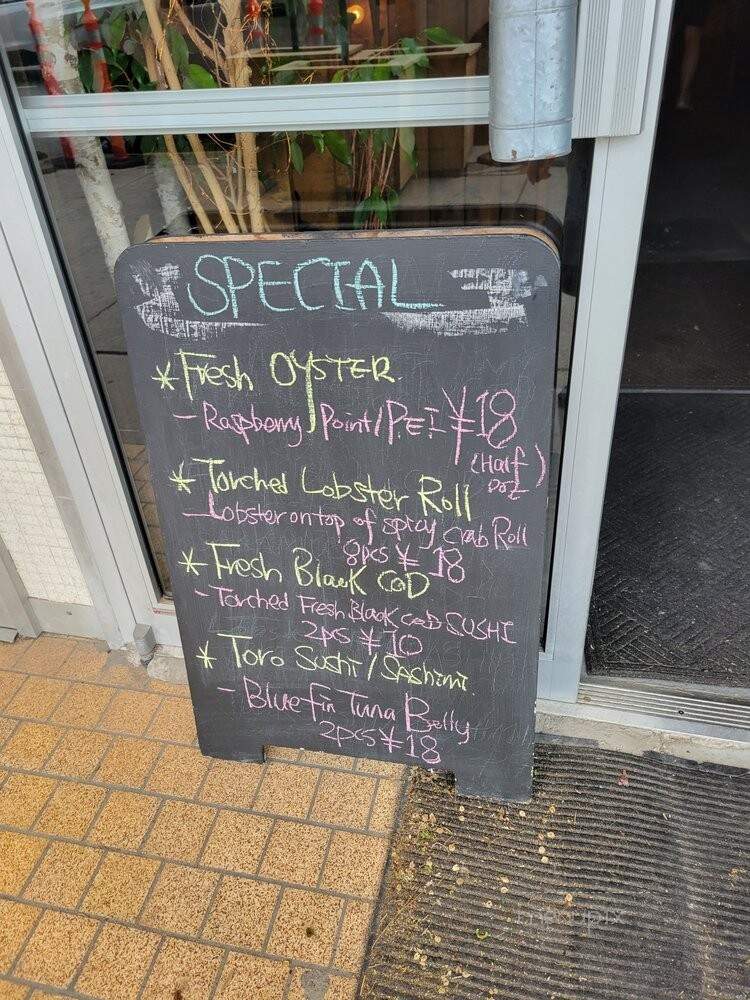 SPECIAL
* Fresh OYSTER
- Raspberry Point/P.E.I ¥18
(Half Doz)
* Torched Lobster Roll
- Lobster on top of spicy crab Roll
8pcs ¥ 18
* Fresh Black COD
- Torched Fresh Black cod SUSHI
2pcs ¥10
* Toro Sushi / Sashimi
- Blue fin Tuna Belly
2pcs ¥18